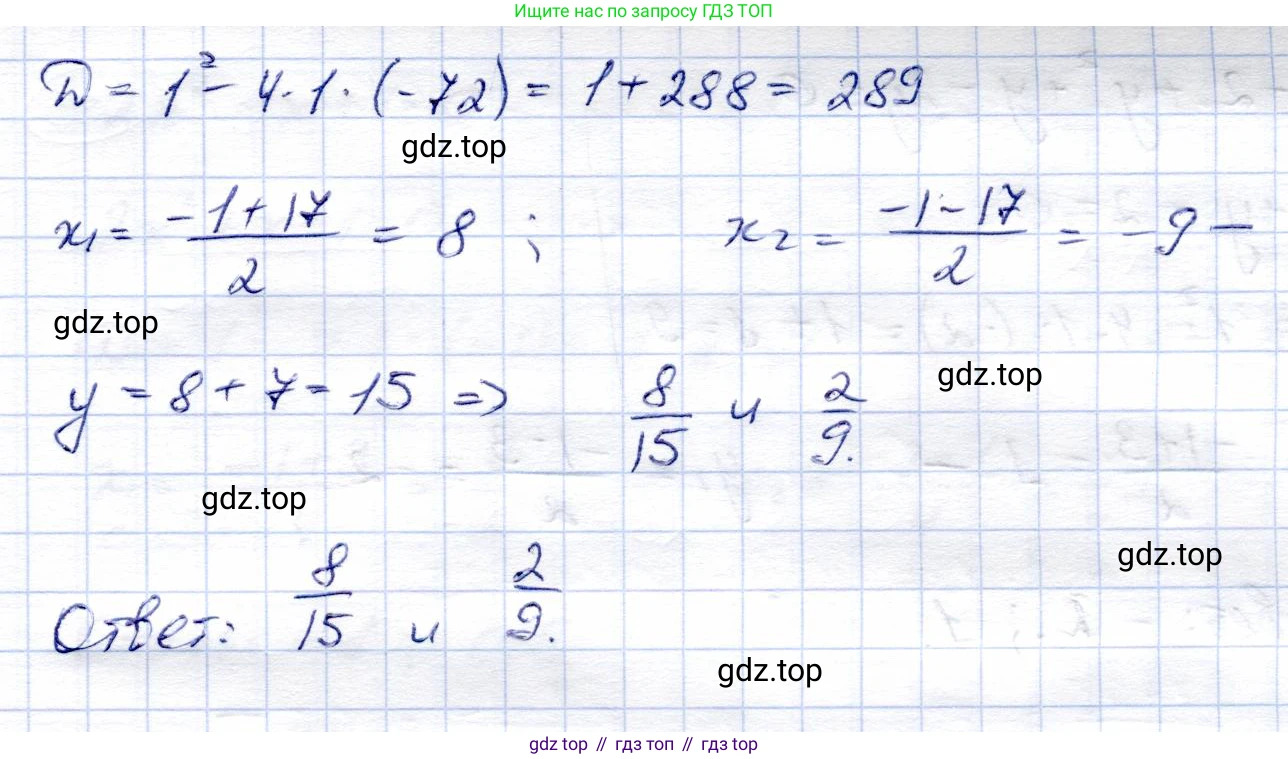 Ищите нас по запросу ГДЗ ТОП
D = 1² - 4·1·(-72) = 1 + 288 = 289
gdz.top
x₁ = (-1+17)/2 = 8 ; x₂ = (-1-17)/2 = -9 —
gdz.top
y = 8 + 7 = 15 => 8/15 и 2/9.
gdz.top
gdz.top
Ответ: 8/15 и 2/9.
gdz.top
gdz.top
gdz top // гдз топ // гдз top